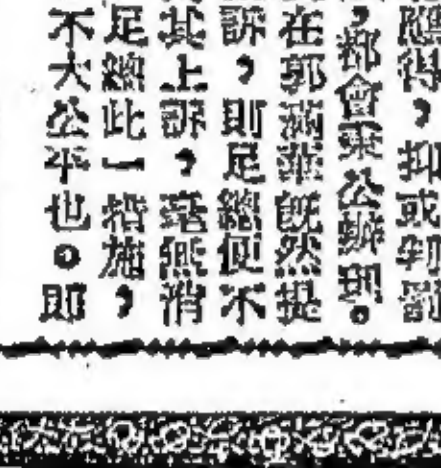 應得，抑或判罰
，都會秉公辦理。
在郭滿華既然提
訴，則足總便不
其上訴，毫無消
足總此一措施，
不大公平也。即